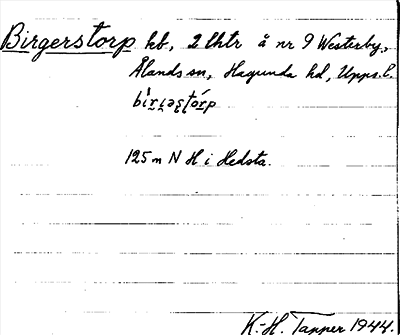 Birgerstorp hb, 2 lhtr å nr 9 Westerby,
Ålands sn, Hagunda hd, Upps. l.
125 m N H i Hedsta.
K.-H. Tapper 1944.